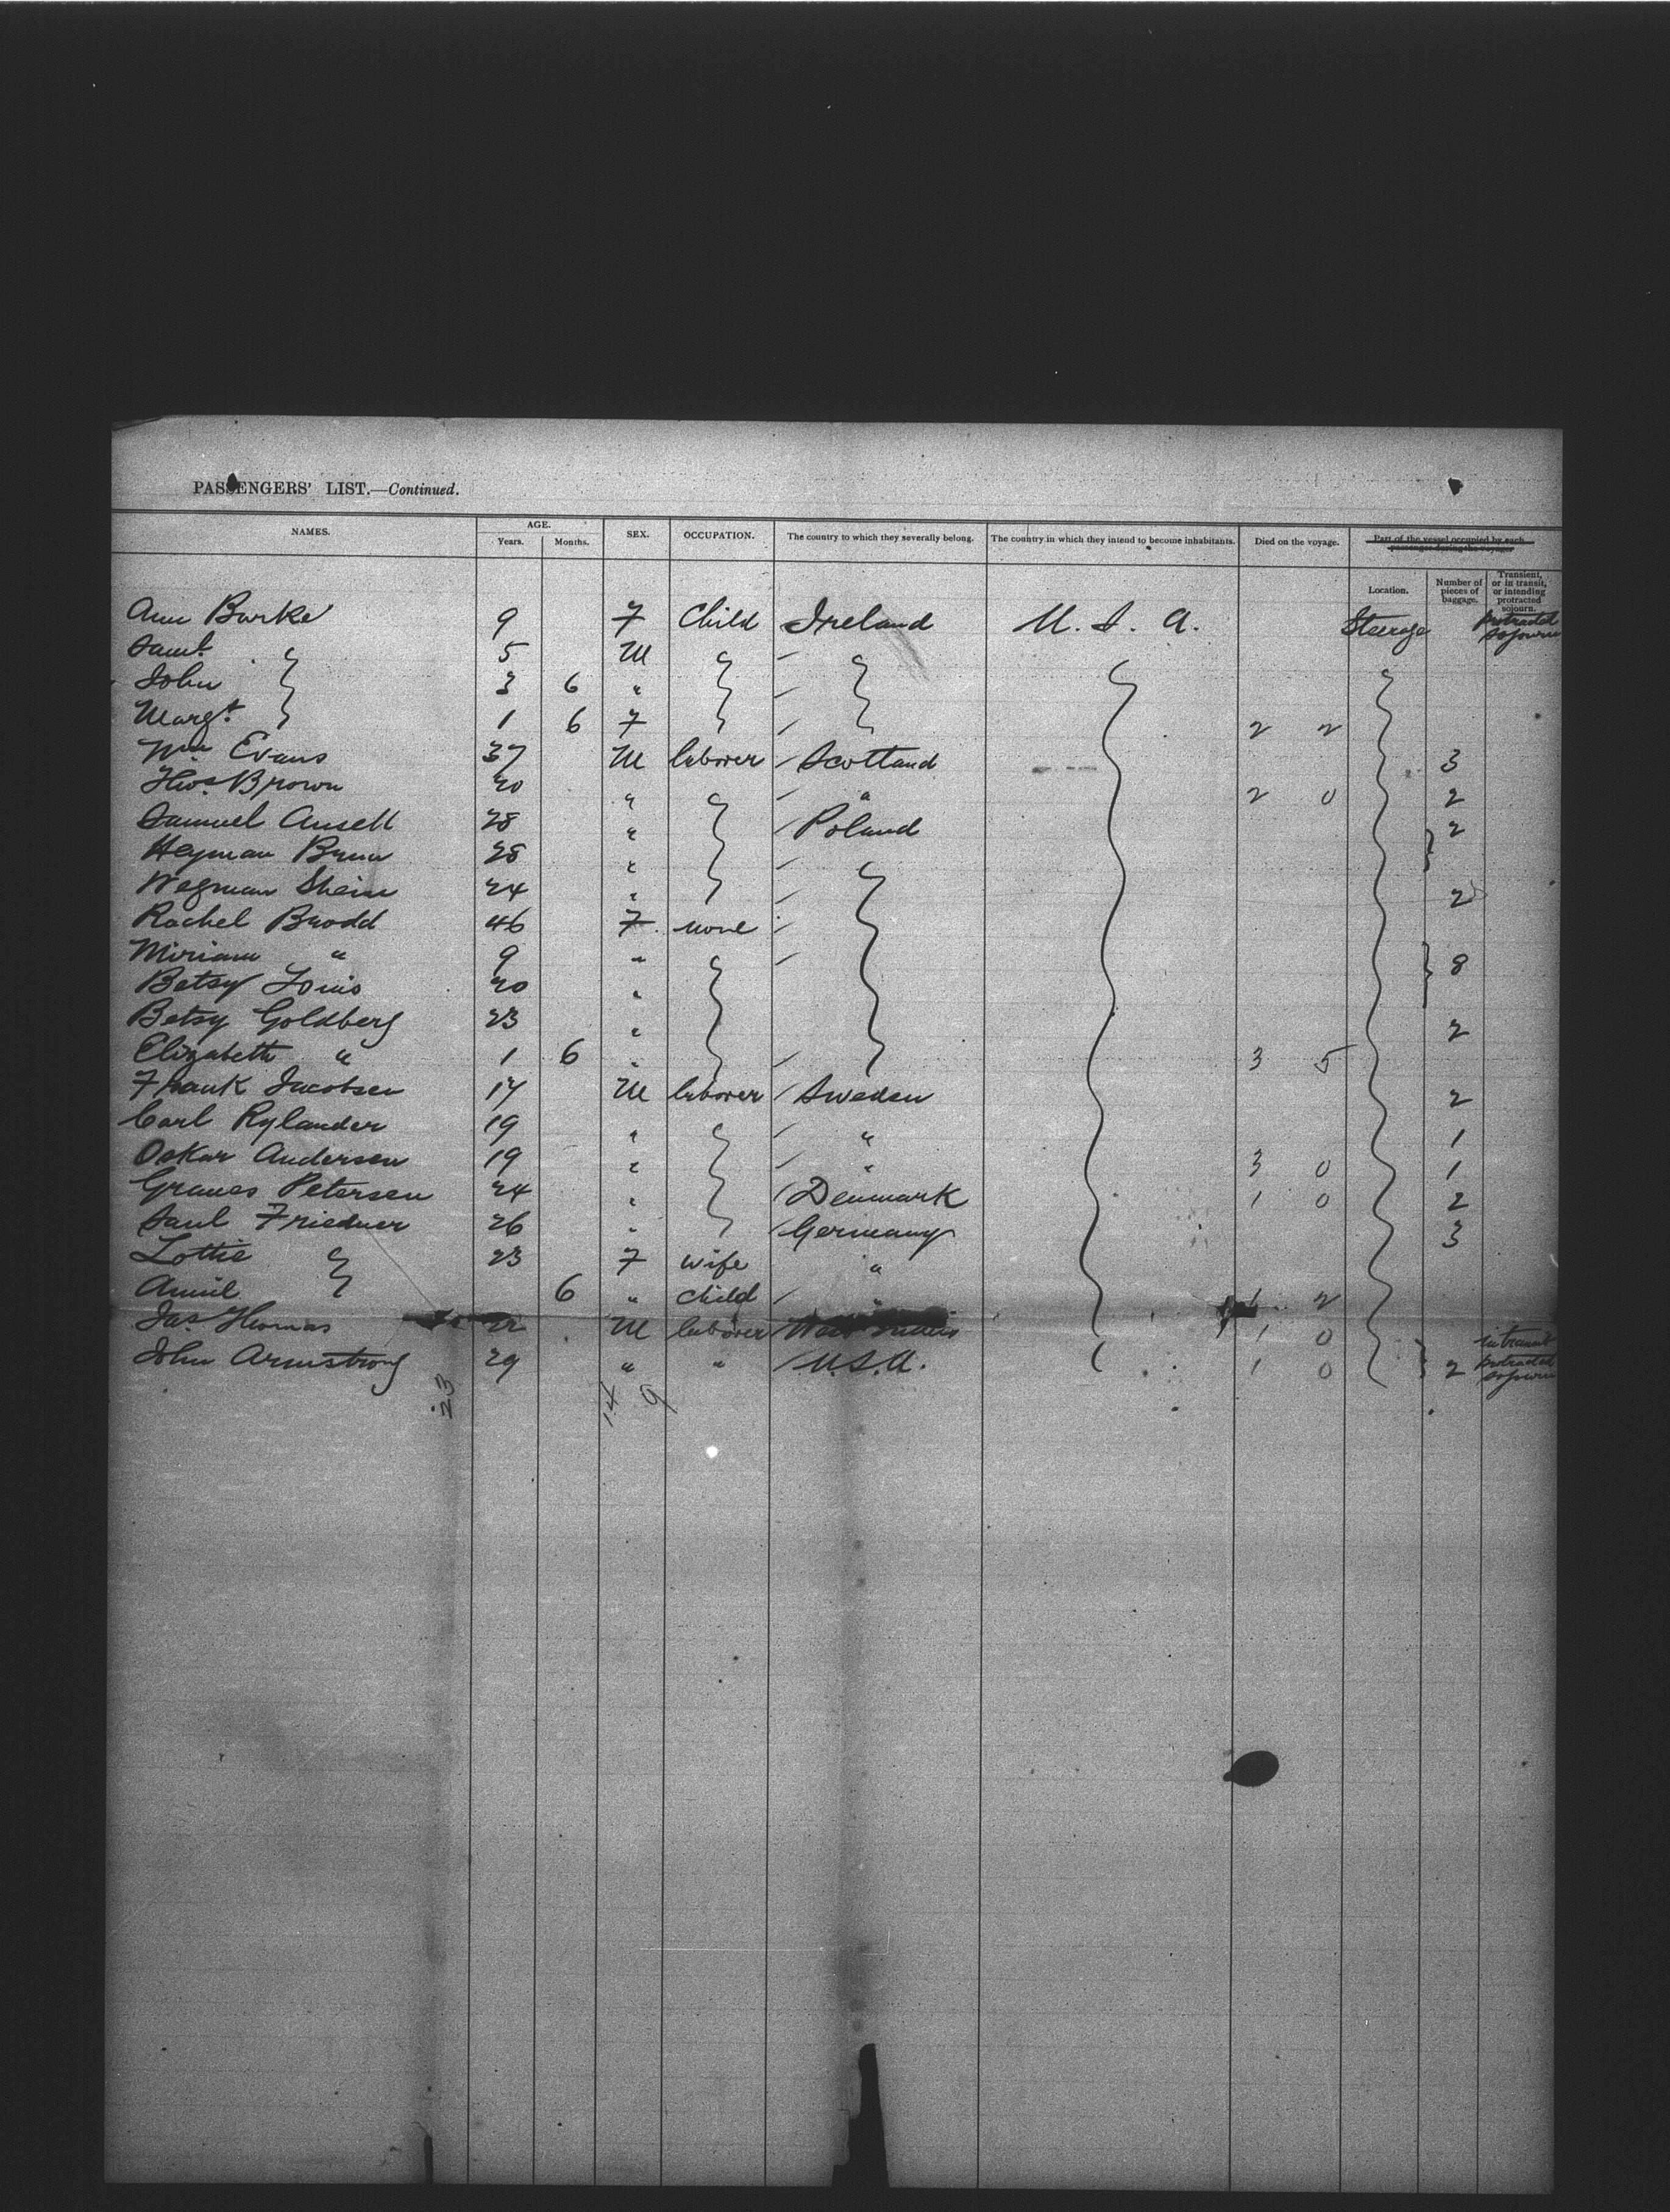 PASSENGERS' LIST.—Continued.
NAMES. AGE. Years. Months. SEX. OCCUPATION. The country to which they severally belong. The country in which they intend to become inhabitants. Died on the voyage. Part of the vessel occupied by each passenger during the voyage
Location. Number of pieces of baggage. Transient, or in transit, or intending protracted sojourn.
Ann Burke 9 F Child Ireland U. S. A. Steerage protracted sojourn
Saml. 5 M
John 3 6 "
Margt. 1 6 F 2 2
Wm Evans 37 M laborer Scotland 3
Thos. Brown 20 " " 2 0 2
Samuel Ansell 28 " Poland 2
Heyman 28 "
Wegman Shein 24 " 2
Rachel Brodd 46 F none
Miriam " 9 " 8
Betsy Louis 20 "
Betsy Goldberg 23 " 2
Elizabeth " 1 6 " 3 5
Frank Jacobsen 17 M laborer Sweden 2
Carl Rylander 19 " " 1
Oskar Andersen 19 " " 3 0 1
Petersen 24 " Denmark 1 0 2
Saul Friedner 26 " Germany 3
Lottie 23 F wife "
Annie 6 " child " 2
Jas. Thomas 22 M laborer 1 0 in transit
John Armstrong 29 " " U.S.A. 1 0 2 protracted sojourn
23 14 9